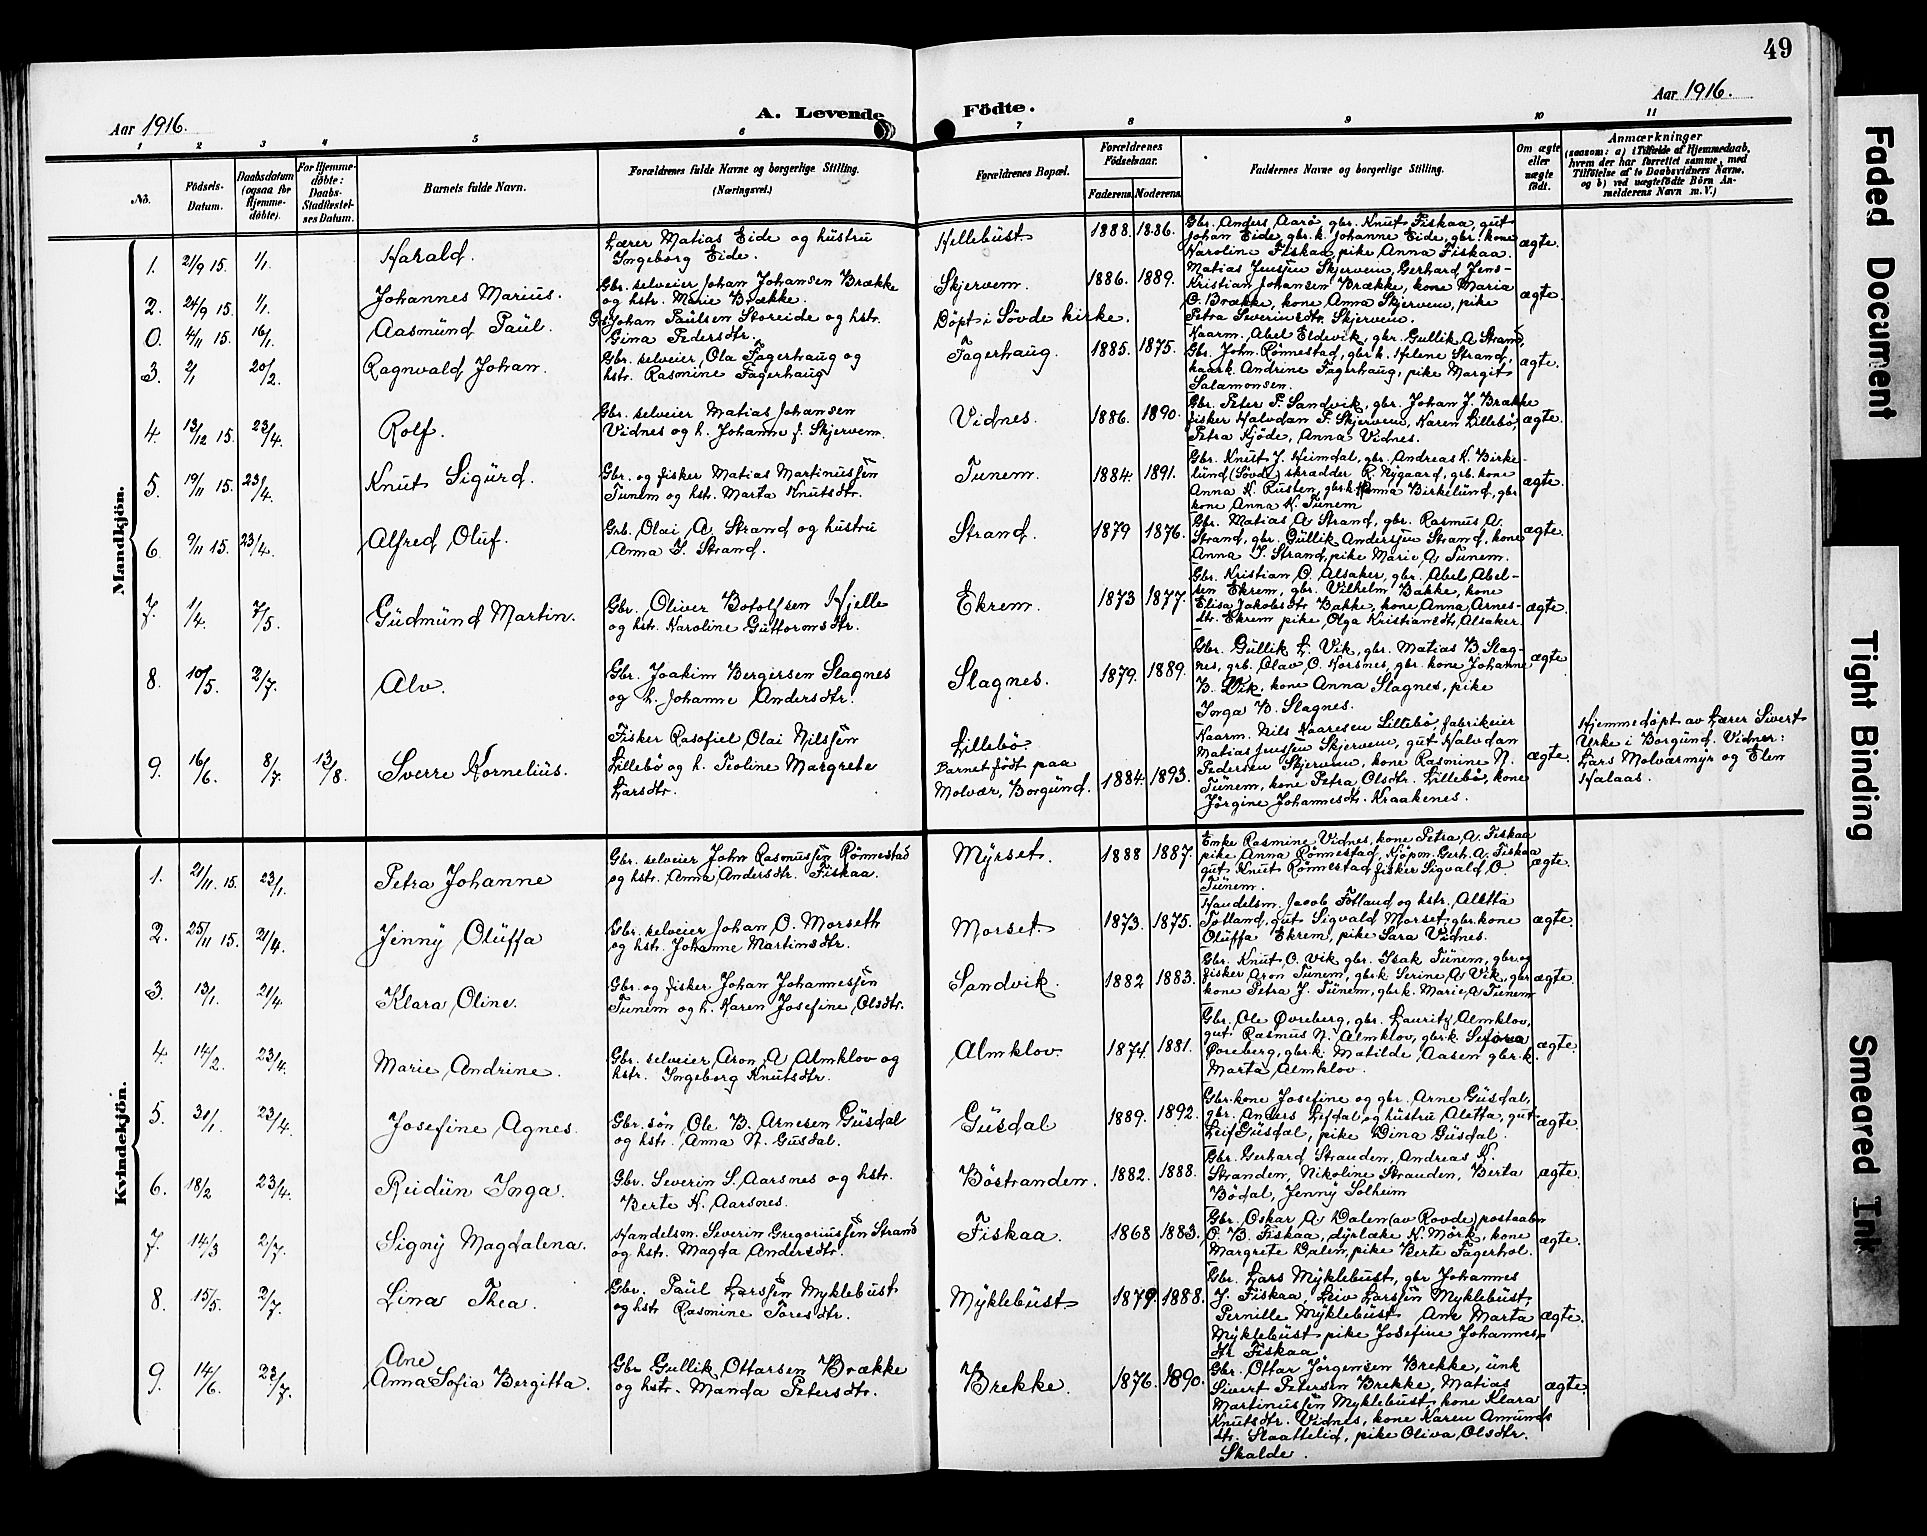 49
Aar 1916.
A. Levende
Födte.
Aar 1916.
1 2 3 4 5 6 7 8 9 10 11
No.
Födsels-
Datum.
Daabsdatum
(ogsaa for
Hjemme-
döbte).
For Hjemme-
döbte:
Daabs-
Stadfæstel-
ses Datum.
Barnets fulde Navn.
Forældrenes fulde Navne og borgerlige Stilling.
(Næringsvei.)
Forældrenes Bopæl.
Forældrenes
Födselsaar.
Faderens. Moderens.
Faddernes Navne og borgerlige Stilling.
Om ægte
eller
uægte
födt.
Anmærkninger
(saasom: a) i Tilfælde af Hjemmedaab,
hvem der har forrettet samme, med
Tilföielse af to Daabsvidners Navne,
og b) ved uægtefödte Börn An-
melderens Navn m. V.)
Mandkjön.
1. 21/9 15. 1/1. Harald.
Lærer Matias Eide og hustru
Ingeborg Eide.
Hellebust 1888. 1886.
Gbr. Anders Aarö, gbr. Knut Fiskaa, gut
Johan Eide, gbr. k. Johanne Eide, gbr. kone
Karoline Fiskaa, pike Anna Fiskaa.
ægte.
2. 24/9 15. 1/1. Johannes Marius.
Gbr. selveier Johan Johansen Brække
og hstr. Marie Brække.
Skjervem. 1886. 1889.
Matias Jenssen Skjervem, Gerhard Jens-
Kristian Johansen Brække, kone Maria
O. Brække, kone Anna Skjervem, pike
Petra Severinsdtr. Skjervem.
ægte.
0. 4/11 15. 16/1. Aasmund Paul.
Johan Paulsen Storeide og hstr.
Gina Pedersdtr.
Döpt i Sövde kirke.
3. 2/1 20/2. Ragnvald Johan.
Gbr. selveier Ola Fagerhaug og
hstr. Rasmine Fagerhaug
Fagerhaug. 1885. 1875.
Kaarm. Abel Eldevik, gbr. Gullik A Strand,
Gbr. John Rönnestad, gbr. k. Helene Strand,
kaark. Andrine Fagerhaug, pike Margit
Salamonsen.
ægte.
4. 13/12 15. 23/4. Rolf.
Gbr. selveier Matias Johansen
Vidnes og h. Johanne f. Skjervem.
Vidnes. 1886. 1890.
Gbr. Peter P. Sandvik, gbr. Johan J. Brække
fisker Halvdan P. Skjervem, Karen Lillebö,
Petra Kjöde, Anna Vidnes.
ægte.
5. 19/11 15. 23/4. Knut Sigurd.
Gbr. og fisker Matias Martinussen
Tunem og hstr. Marta Knutsdtr.
Tunem. 1884. 1891.
Gbr. Knut J. Heimdal, gbr. Andreas K. Birke-
lund (Sövde) skrædder R. Nygaard, grb. kone
Anna K. Rusten, gbr. k. Anna Birkelund, gbr
kone Anna K. Tunem
ægte.
6. 9/11 15. 23/4. Alfred Oluf.
Grb. Olai A. Strand og hustru
Anna J. Strand.
Strand. 1879 1876.
Gbr. Matias A Strand, gbr. Rasmus A.
Strand, gbr. Gullik Anderssen Strand, kone
Anna J. Strand, pike Marie A Tunem.
ægte.
7. 1/4. 7/5. Gudmund Martin.
Gbr. Oliver Botolfsen Hjelle
og hstr. Karoline Guttormsdtr.
Ekrem. 1873 1877.
Gbr. Kristian O. Alsaker, gbr. Abel Abel-
sen Ekrem, gbr. Vilhelm Bakke, kone
Elisa Jakobsdtr Bakke, kone Anna Arnes-
dtr. Ekrem pike Olga Kristiansdtr. Alsaker.
ægte.
8. 10/5. 2/7. Alv.
Gbr. Joakim Bergersen Slagnes
og h. Johanne Andersdtr.
Slagnes. 1879. 1889.
Gbr. Gullik L. Vik, gbr. Matias B Slag-
nes, grb. Olav O. Korsnes, gbr. kone Johanne
B. Vik, kone Anna Slagnes, pike
Inga B. Slagnes.
ægte
9. 16/6. 8/7. 13/8. Sverre Kornelius.
Fisker Rasofiel Olai Nilssen
Lillebö og h. Teoline Margrete
Larsdtr.
Lillebö.
Barnet födt paa
Molvær, Borgund. 1884. 1893.
Kaarm. Nils Kaaresen Lillebö fabrikeier
Matias Jenssen Skjervem, gut Halvdan
Pedersen Skjervem, kone Rasmine N.
Tunem, kone Petra Olsdtr. Lillebö, kone
Jörgine Johannesdtr. Kraakenes.
ægte.
Hjemmedöpt av Lærer Sivert
Urke i Borgund. Vidner:
Lars Molværmyr og Elen
Halaas.
Kvindekjön.
1. 21/11. 15. 23/1. Petra Johanne
Gbr. selveier John Rasmussen Rönnestad
og hstr. Anna Andersdtr. Fiskaa.
Myrset. 1888 1887.
Enke Rasmine Vidnes, kone Petra A. Fiskaa
pike Anna Rönnestad, Kjöpm. Gerh. A. Fiskaa
gut Knut Rönnestad fisker Sigvald O.
Tunem.
ægte.
2. 25/11 15. 21/4. Jenny Oluffa
Gbr. selveier Johan O. Morseth
og hstr. Johanne Martinsdtr.
Morset. 1873. 1875.
Handelsm. Jacob Totland og hstr. Aletta
Totland, gut Sigvald Morset, gbr. kone
Oluffa Ekrem, pike Sara Vidnes.
ægte.
3. 13/1. 21/4. Klara Oline.
Gbr. og fisker Johan Johannessen
Tunem og h. Karen Josefine Olsdtr.
Sandvik. 1882 1883.
Gbr. Knut O. Vik gbr. Isak Tunem, gbr. og
fisker Aron Tunem, gbr. k. Serine A Vik, gbr
kone Petra J. Tunem, gbr. k. Marie A Tunem
ægte.
4. 14/2. 23/4. Marie Andrine.
Gbr. selveier Aron A Almklov og
hstr. Ingeborg Knutsdtr.
Almklov. 1874. 1881.
Gbr. Ole Øvreberg, gbr. Lauritz Almklov,
gut Rasmus N. Almklov, gbr. k. Sefora
Øvreberg, gbr. k. Matilde Aasen gbr. k.
Marta Almklov.
ægte.
5. 31/1. 23/4. Josefine Agnes.
Gbr. sön Ole B. Arnesen Gusdal
og hstr. Anna N. Gusdal.
Gusdal 1889. 1892.
Gbr. kone Josefine og gbr. Arne Gusdal,
gbr. Anders Lefdal og hustru Aletta, gut
Leif Gusdal, pike Dina Gusdal.
ægte.
6. 18/2 23/4. Reidun Inga.
Gbr. Severin S. Aarsnes og hstr.
Berte K. Aarsnes.
Böstranden. 1882. 1888.
Gbr. Gerhard Stranden, Andreas K.
Stranden, Nikoline Stranden, Berta
Bödal, Jenny Solheim
ægte.
7. 14/3 2/7. Signy Magdalena.
Handelsm. Severin Gregoriussen Strand
og hstr. Magda Andersdtr.
Fiskaa. 1868 1883.
Gbr. Oskar A Dalen (av Rovde) postaabn
O. B. Fiskaa, dyrlæke K. Mörk, kone
Margrete Dalen, pike Berte Fagerhol.
ægte.
8. 15/5. 2/7. Lina Thea.
Gbr. Paul Larssen Myklebust
og hstr Rasmine Toresdtr.
Myklebust 1879. 1888.
Gbr. Lars Myklebust, gbr Johannes
J. Fiskaa, Leiv Larssen Myklebust,
Pernille Myklebust, Ane Marta
Myklebust pike Josefine Johannes-
dtr Fiskaa
ægte.
9. 14/6. 23/7. Ane
Anna Sofia Bergitta.
Gbr Gullik Ottarsen Brække
og hstr. Manda Petersdtr.
Brekke. 1876. 1890.
Gbr. Ottar Jörgensen Brekke, unk
Sivert Petersen Brekke, Matias
Martinussen Myklebust, kone Klara
Knutsdtr. Vidnes, kone Karen Amunds
dtr. Slaattelid, pike Oliva Olsdtr.
Skalde.
ægte.
Faded Document
Tight Binding
Smeared Ink